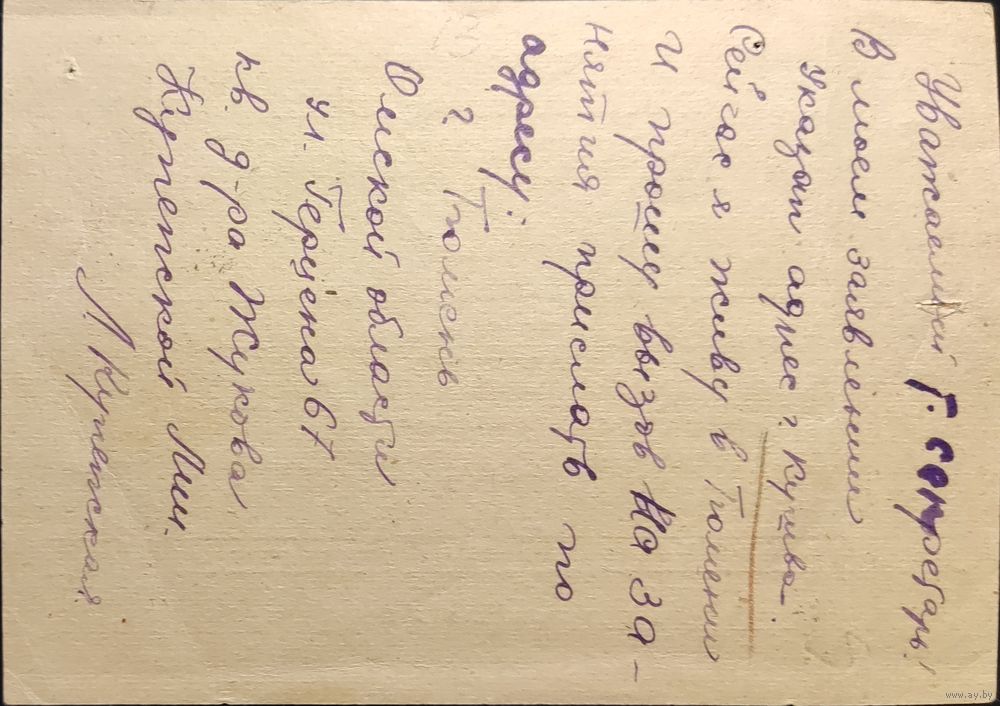 Уважаемый Г. секретарь!
В моем заявлении
указан адрес г. Кушва.
Сейчас я живу в Тюмени
И прошу вызов на за-
нятия прислать по
адресу:
г. Тюмень
Омской области
ул. Герцена 67
кв. д-ра Жукова
Купетской Лил.
Л. Купетская
www.ay.by